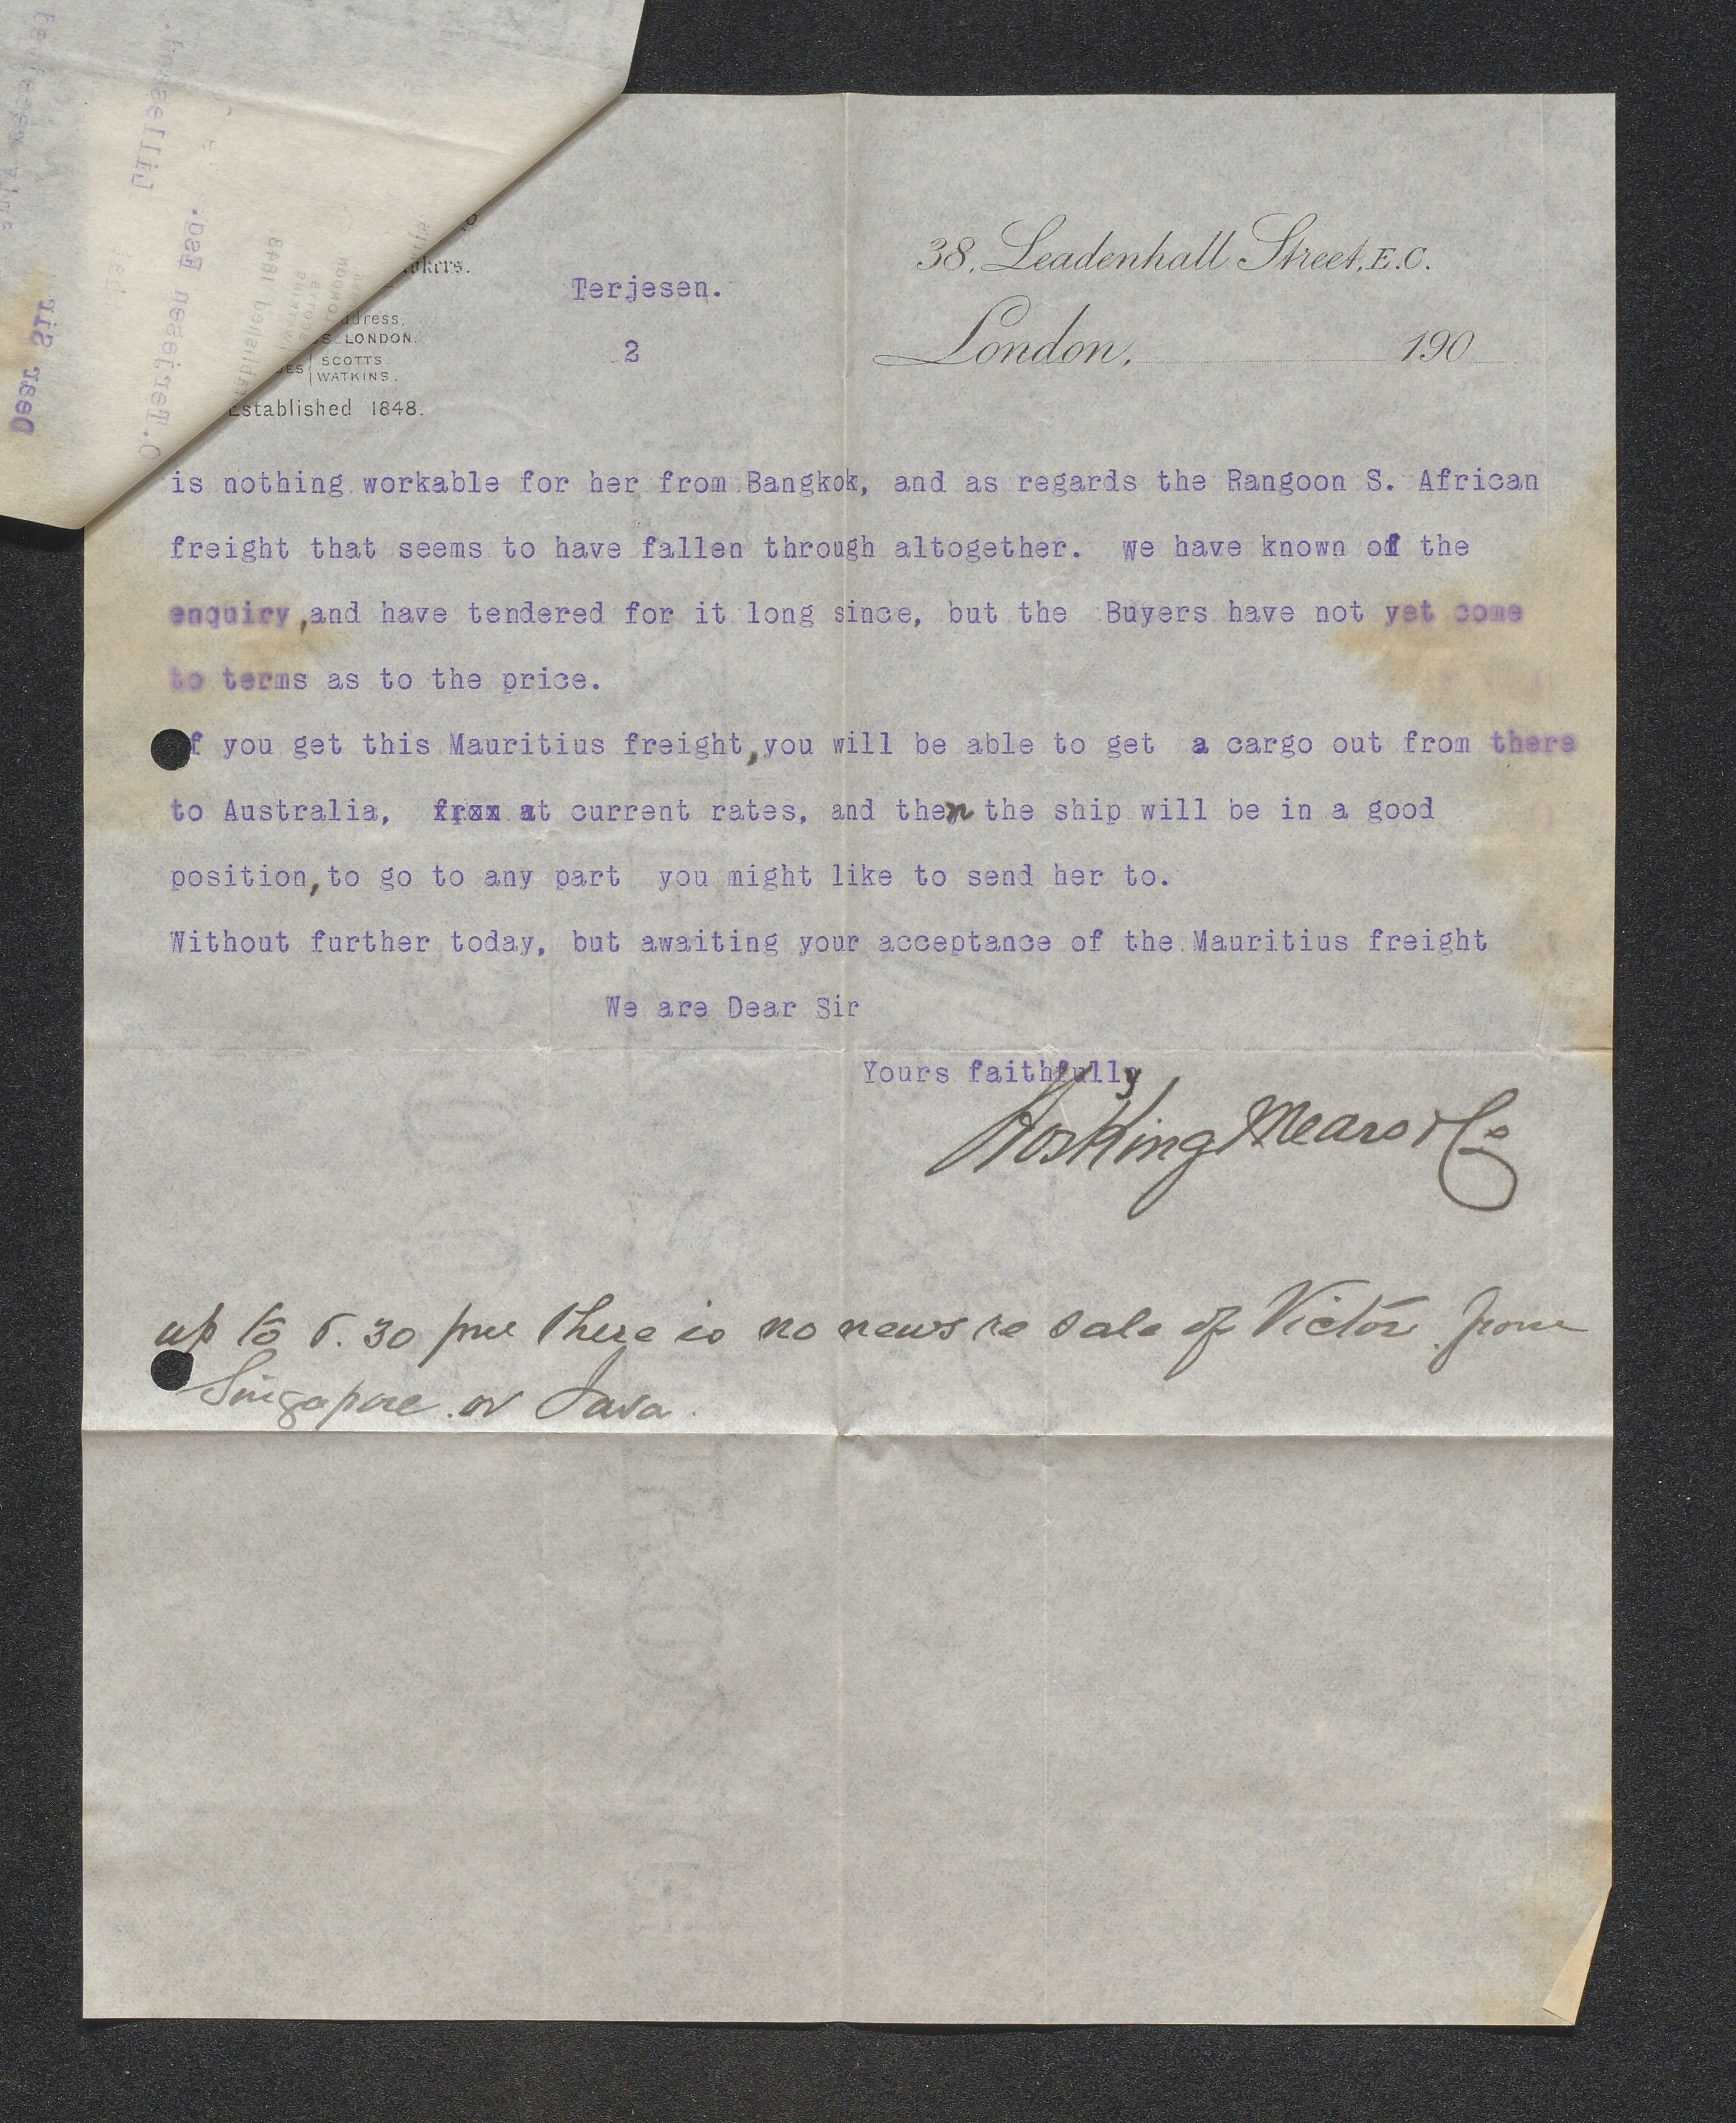 38, Leadenhall Street, E.C.
London, 190
okers.
Terjesen.
2
ddress,
LONDON.
SCOTTS
WATKINS.
Established 1848.
is nothing workable for her from Bangkok, and as regards the Rangoon S. African
freight that seems to have fallen through altogether. we have known of the
enquiry, and have tendered for it long since, but the Buyers have not yet come
to terms as to the price.
f you get this Mauritius freight, you will be able to get a cargo out from there
to Australia, at current rates, and then the ship will be in a good
position, to go to any part you might like to send her to.
Without further today, but awaiting your acceptance of the Mauritius freight
We are Dear Sir
Yours faithfully
Hosking Mears & Co
up to 6.30 pm there is no news re sale of Victor from
Singapore or Java.
Dear Sir
O. Terjesen Esq.
Lillesand
Established 1848